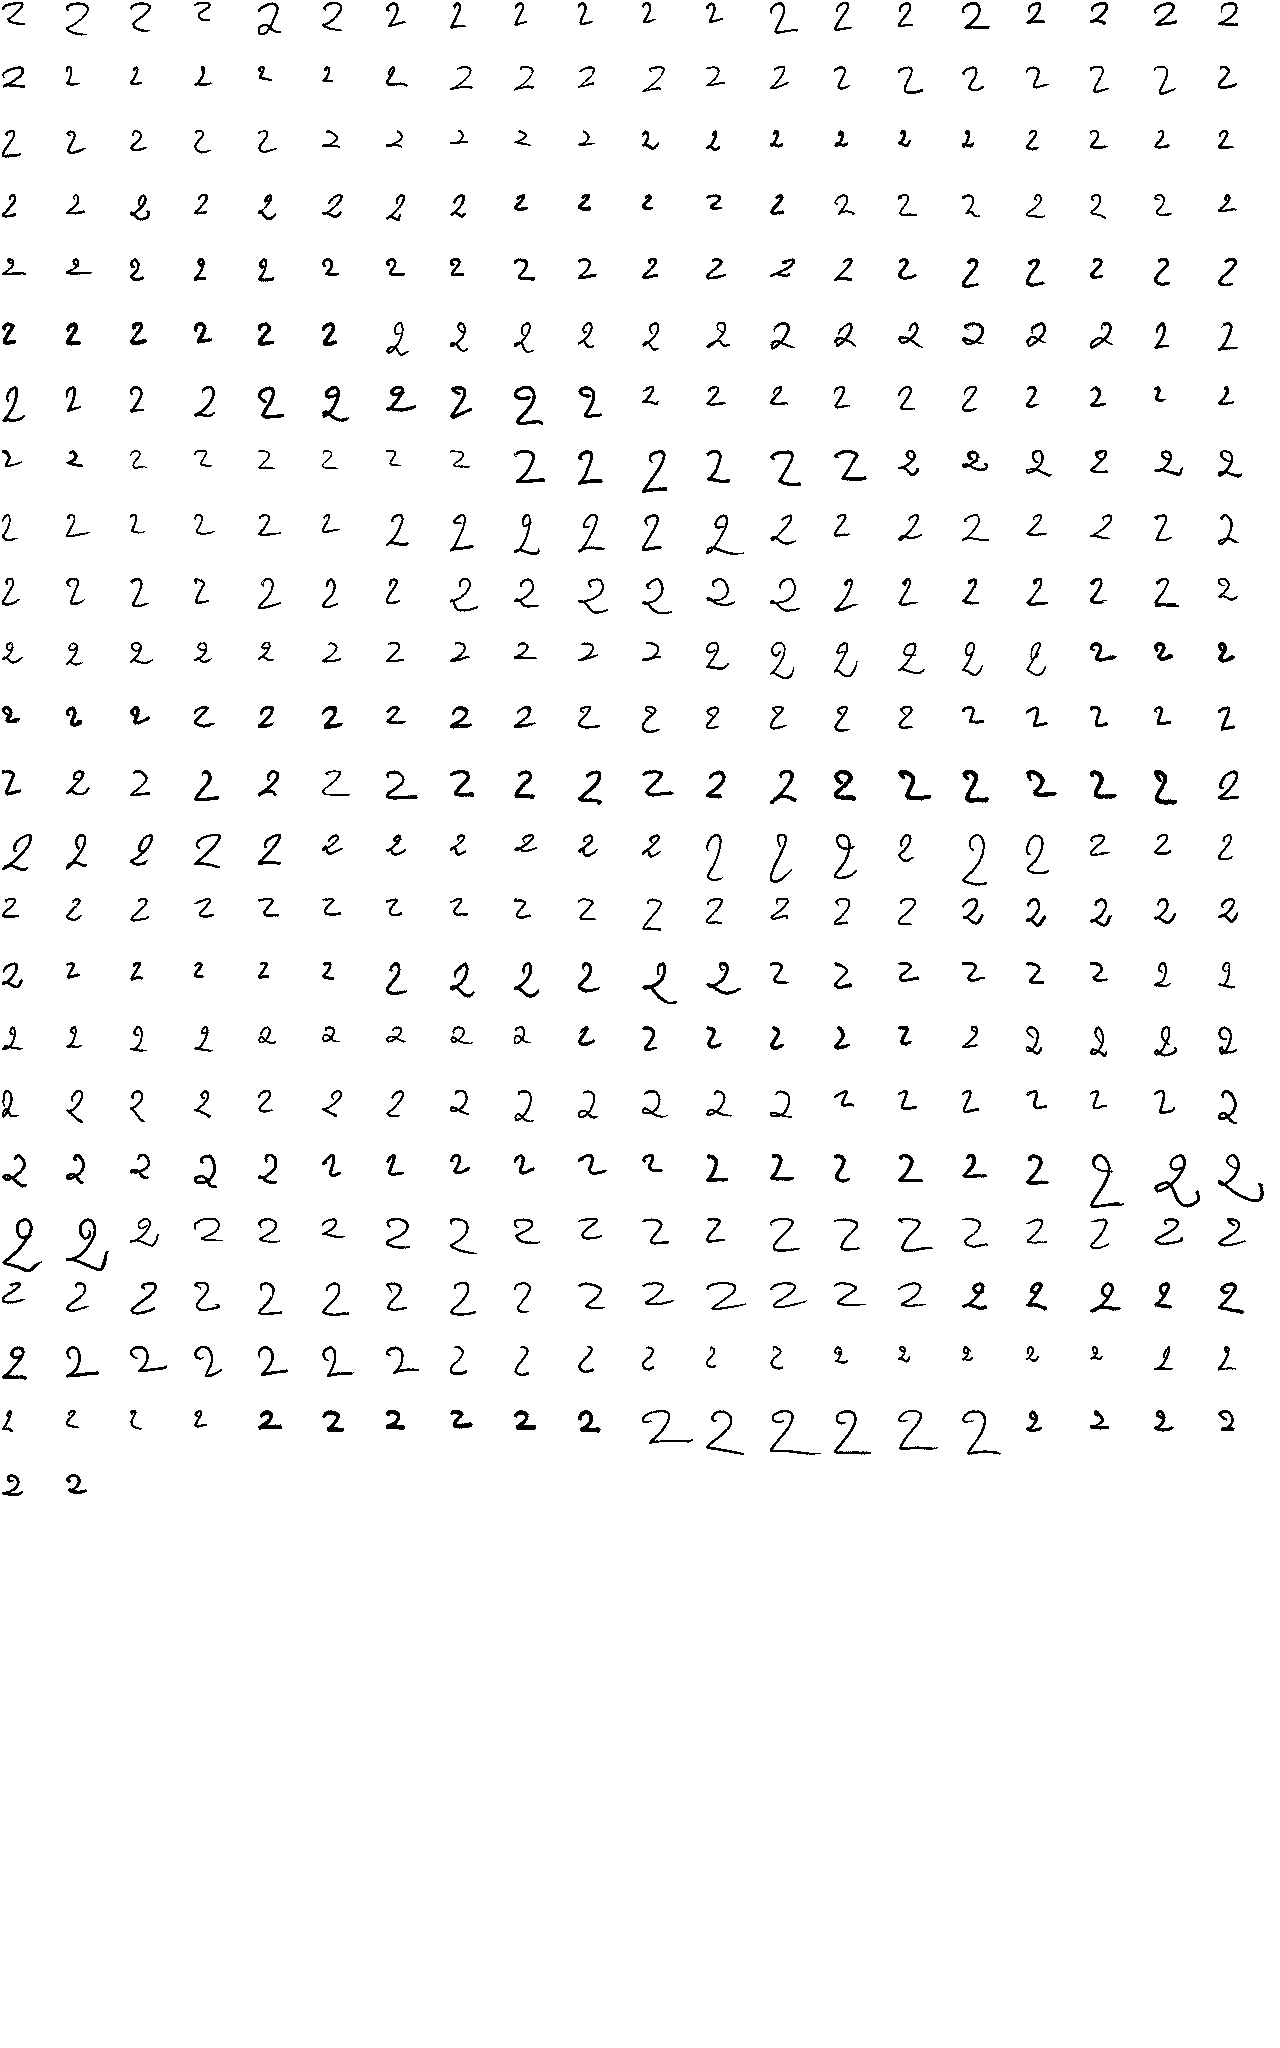 2 2 2 2 2 2 2 2 2 2 2 2 2 2 2 2 2 2 2 2
2 2 2 2 2 2 2 2 2 2 2 2 2 2 2 2 2 2 2 2
2 2 2 2 2 2 2 2 2 2 2 2 2 2 2 2 2 2 2 2
2 2 2 2 2 2 2 2 2 2 2 2 2 2 2 2 2 2 2 2
2 2 2 2 2 2 2 2 2 2 2 2 2 2 2 2 2 2 2 2
2 2 2 2 2 2 2 2 2 2 2 2 2 2 2 2 2 2 2 2
2 2 2 2 2 2 2 2 2 2 2 2 2 2 2 2 2 2 2 2
2 2 2 2 2 2 2 2 2 2 2 2 2 2 2 2 2 2 2 2
2 2 2 2 2 2 2 2 2 2 2 2 2 2 2 2 2 2 2 2
2 2 2 2 2 2 2 2 2 2 2 2 2 2 2 2 2 2 2 2
2 2 2 2 2 2 2 2 2 2 2 2 2 2 2 2 2 2 2 2
2 2 2 2 2 2 2 2 2 2 2 2 2 2 2 2 2 2 2 2
2 2 2 2 2 2 2 2 2 2 2 2 2 2 2 2 2 2 2 2
2 2 2 2 2 2 2 2 2 2 2 2 2 2 2 2 2 2 2 2
2 2 2 2 2 2 2 2 2 2 2 2 2 2 2 2 2 2 2 2
2 2 2 2 2 2 2 2 2 2 2 2 2 2 2 2 2 2 2 2
2 2 2 2 2 2 2 2 2 2 2 2 2 2 2 2 2 2 2 2
2 2 2 2 2 2 2 2 2 2 2 2 2 2 2 2 2 2 2 2
2 2 2 2 2 2 2 2 2 2 2 2 2 2 2 2 2 2 2 2
2 2 2 2 2 2 2 2 2 2 2 2 2 2 2 2 2 2 2 2
2 2 2 2 2 2 2 2 2 2 2 2 2 2 2 2 2 2 2 2
2 2 2 2 2 2 2 2 2 2 2 2 2 2 2 2 2 2 2 2
2 2 2 2 2 2 2 2 2 2 2 2 2 2 2 2 2 2 2 2
2 2